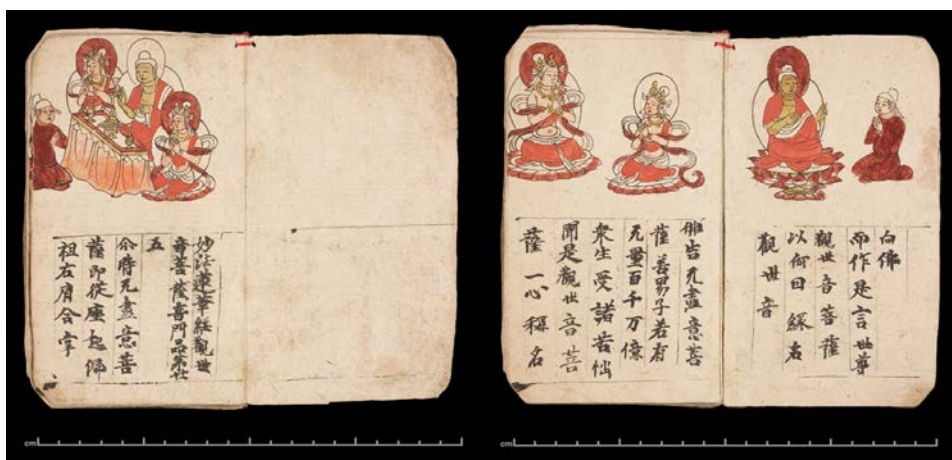 妙法蓮華經觀世
音菩薩普門品第廿
五
尒時无盡意菩
薩即從座起偏
袒右肩合掌
向佛
而作是言世尊
觀世音菩薩
以何因緣名
觀世音
佛告无盡意菩
薩善男子若有
无量百千万億
衆生受諸苦惱
聞是觀世音菩
薩一心稱名
cm
cm